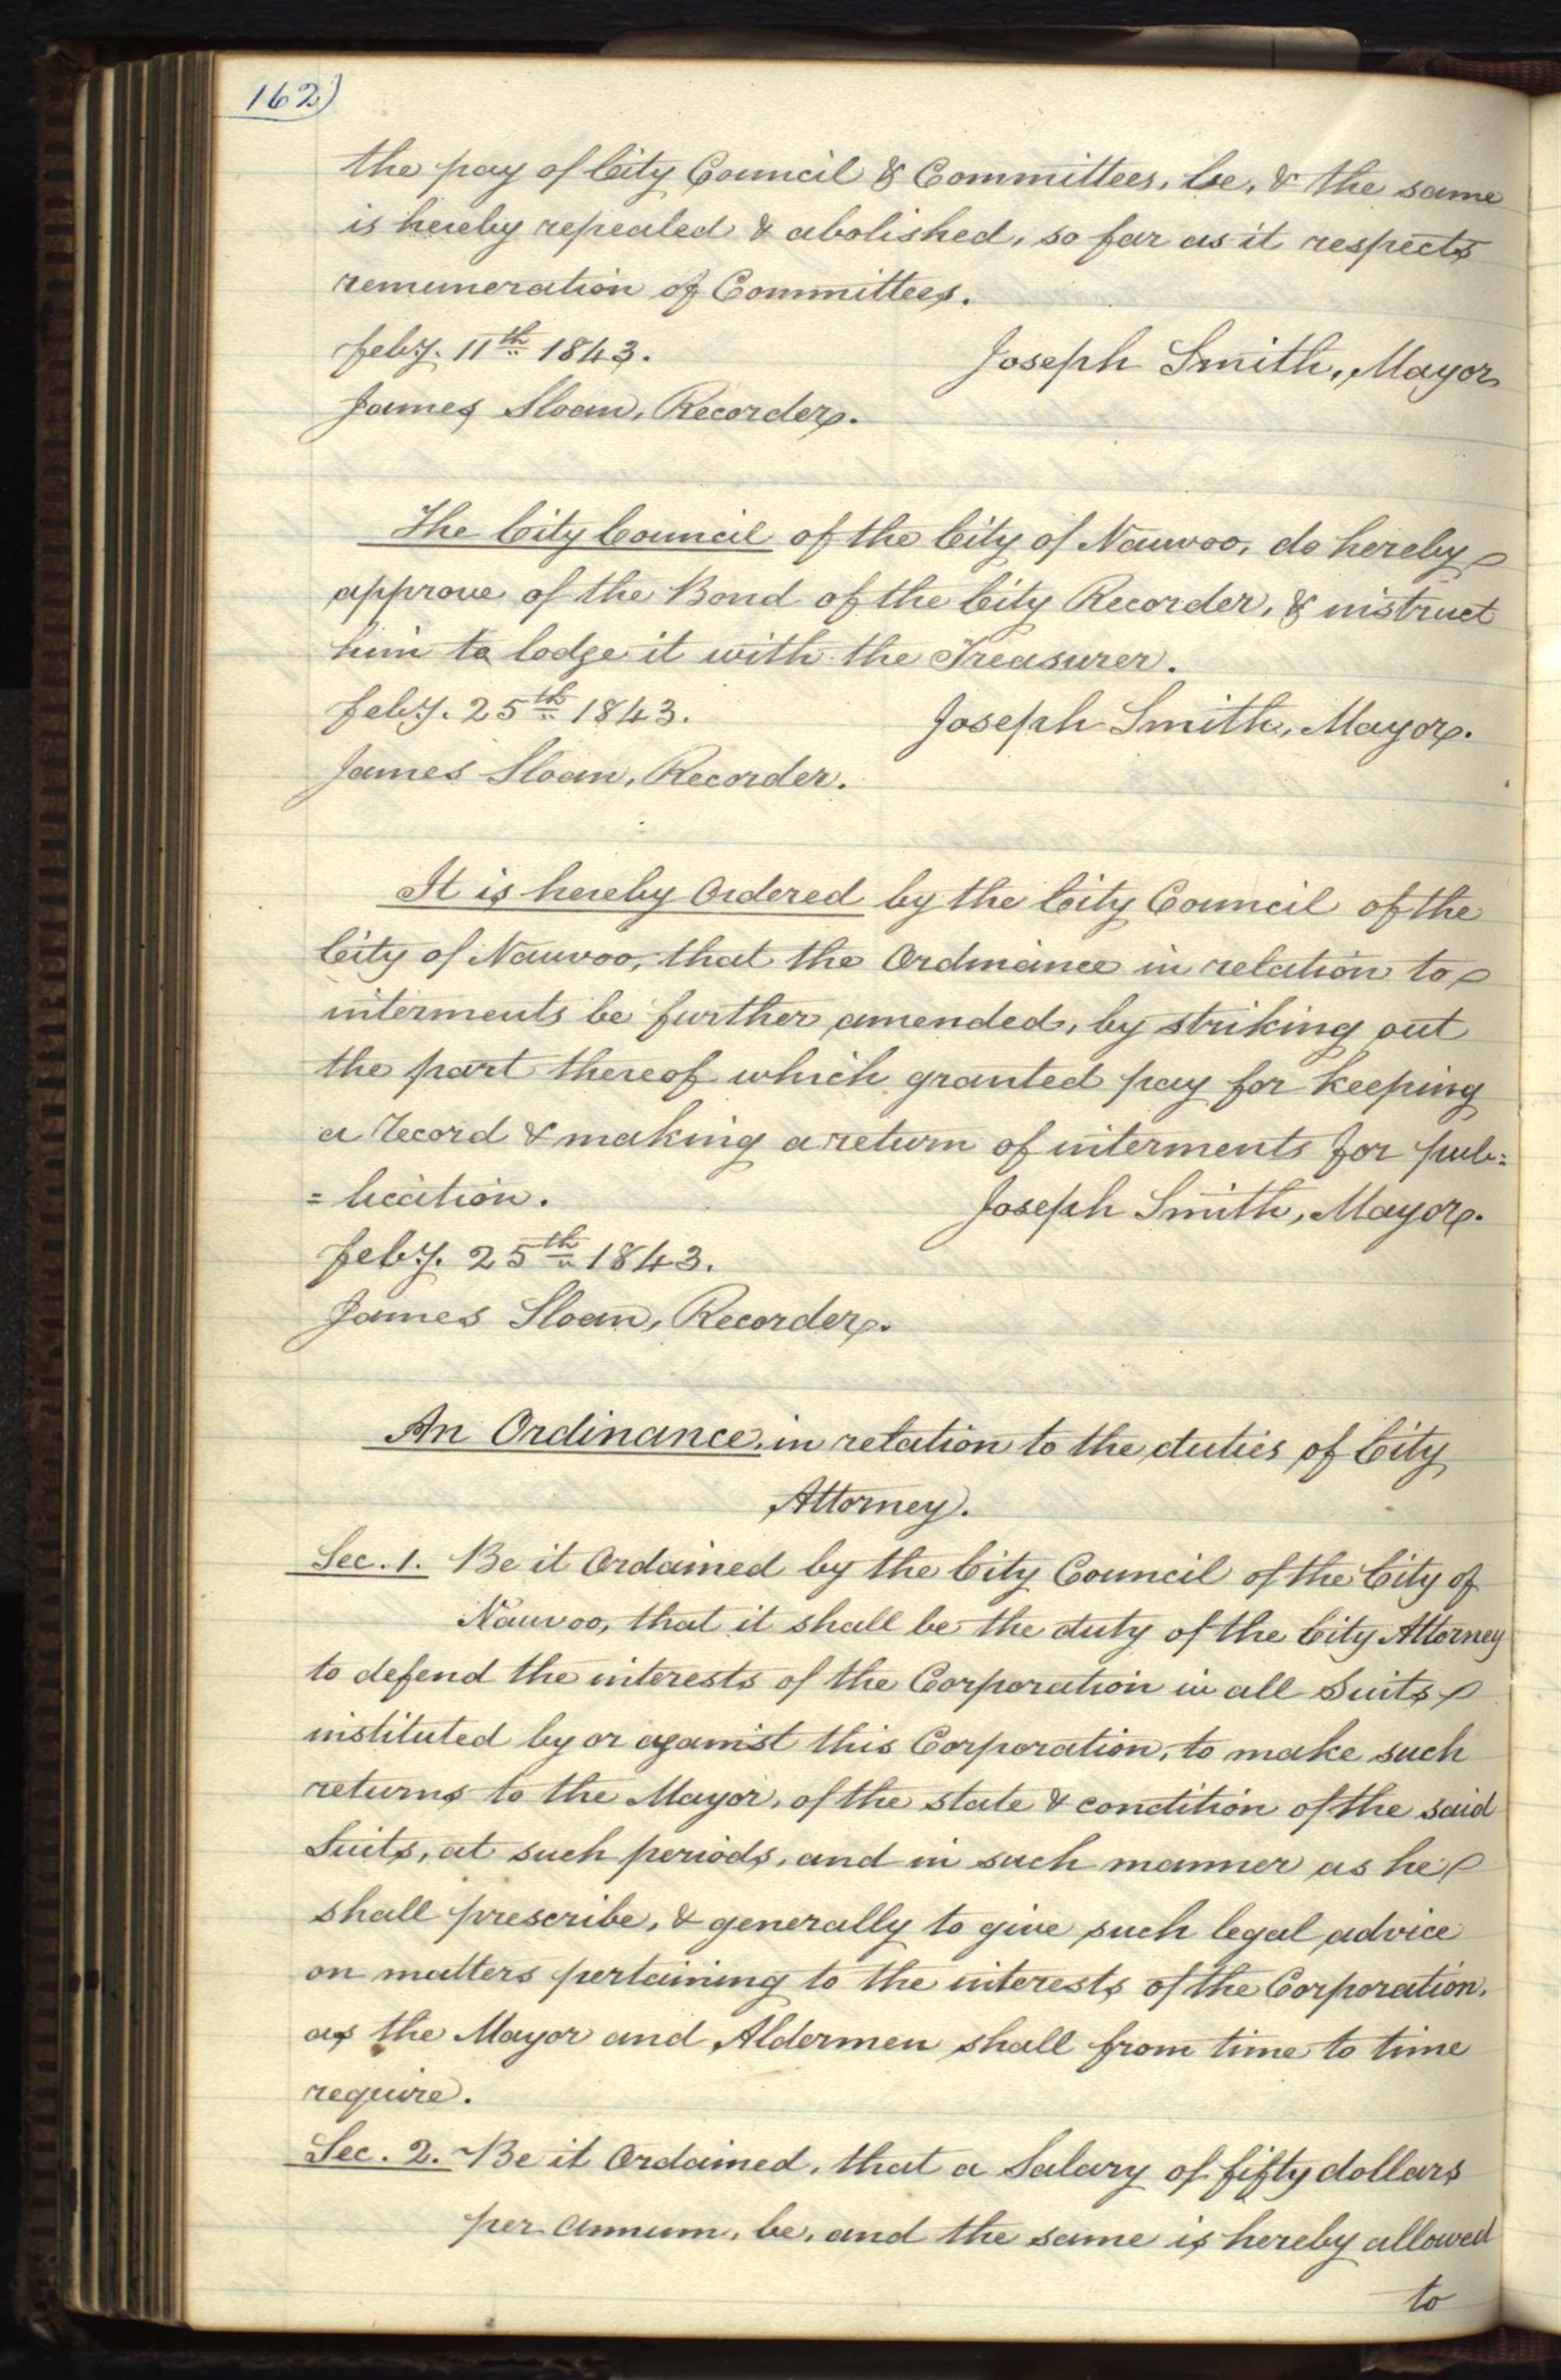 162)
the pay of City Council & Committees, be, & the same
is hereby repealed & abolished, so far as it respects
remuneration of Committees.
Feby. 11th 1843.
Joseph Smith, Mayor
James Sloan, Recorder.
The City Council of the City of Nauvoo, do hereby
approve of the Bond of the City Recorder, & instruct
him to lodge it with the Treasurer.
Feby. 25th 1843.
Joseph Smith, Mayor.
James Sloan, Recorder.
It is hereby Ordered by the City Council of the
City of Nauvoo, that the Ordinance in relation to
interments be further amended, by striking out
the part thereof which granted pay for keeping
a record & making a return of interments for pub=
=lication.
Joseph Smith, Mayor.
Feby. 25th 1843.
James Sloan, Recorder.
An Ordinance, in relation to the duties of City
Attorney.
Sec. 1. Be it Ordained by the City Council of the City of
Nauvoo, that it shall be the duty of the City Attorney
to defend the interests of the Corporation in all Suits
instituted by or against this Corporation, to make such
returns to the Mayor, of the state & condition of the said
Suits, at such periods, and in such manner as he
shall prescribe, & generally to give such legal advice
on matters pertaining to the interests of the Corporation,
as the Mayor and Aldermen shall from time to time
require.
Sec. 2. Be it Ordained, that a Salary of fifty dollars
per annum, be, and the same is hereby allowed
to